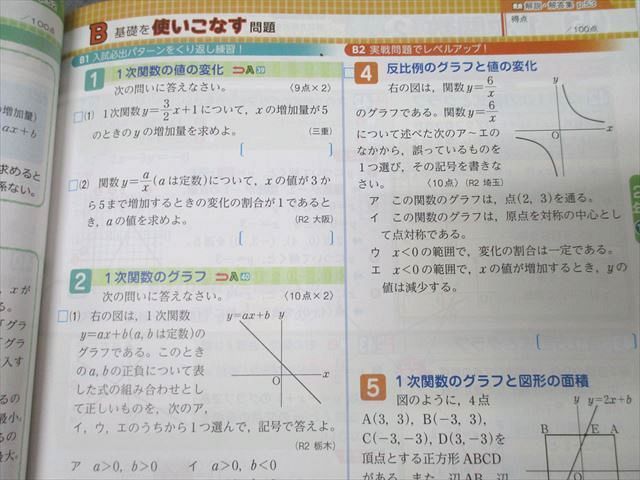 /100点
加量)
ax+b
求めると
係ない。
B 基礎を使いこなす問題
解説・解答集 p.53
得点
/100点
B1 入試必出パターンをくり返し練習!
1 1次関数の値の変化 ⊃A39
次の問いに答えなさい。 〈9点×2〉
□(1) 1次関数y=3/2x+1について,xの増加量が5
のときのyの増加量を求めよ。 (三重)
[ ]
□(2) 関数y=a/x(aは定数)について,xの値が3か
ら5まで増加するときの変化の割合が1であると
き,aの値を求めよ。 (R2 大阪)
[ ]
2 1次関数のグラフ ⊃A40
次の問いに答えなさい。 〈10点×2〉
□(1) 右の図は,1次関数
y=ax+b(a, bは定数)の
グラフである。このとき
のa, bの正負について表
した式の組み合わせとし
て正しいものを,次のア,
イ,ウ,エのうちから1つ選んで,記号で答えよ。
(R2 栃木)
ア a>0, b>0 イ a>0, b<0
y=ax+b y
O x
B2 実戦問題でレベルアップ!
4 反比例のグラフと値の変化
右の図は,関数y=6/x
のグラフである。関数y=6/x
について述べた次のア~エの
なかから,誤っているものを
1つ選び,その記号を書きな
さい。 〈10点〉(R2 埼玉)
y
O x
ア この関数のグラフは,点(2, 3)を通る。
イ この関数のグラフは,原点を対称の中心とし
て点対称である。
ウ x<0の範囲で,変化の割合は一定である。
エ x<0の範囲で,xの値が増加するとき,yの
値は減少する。
[ ]
5 1次関数のグラフと図形の面積
図のように,4点
A(3, 3), B(-3, 3),
C(-3, -3), D(3, -3)を
頂点とする正方形ABCD
がある。また,辺AB,辺
y y=2x+b
B E A